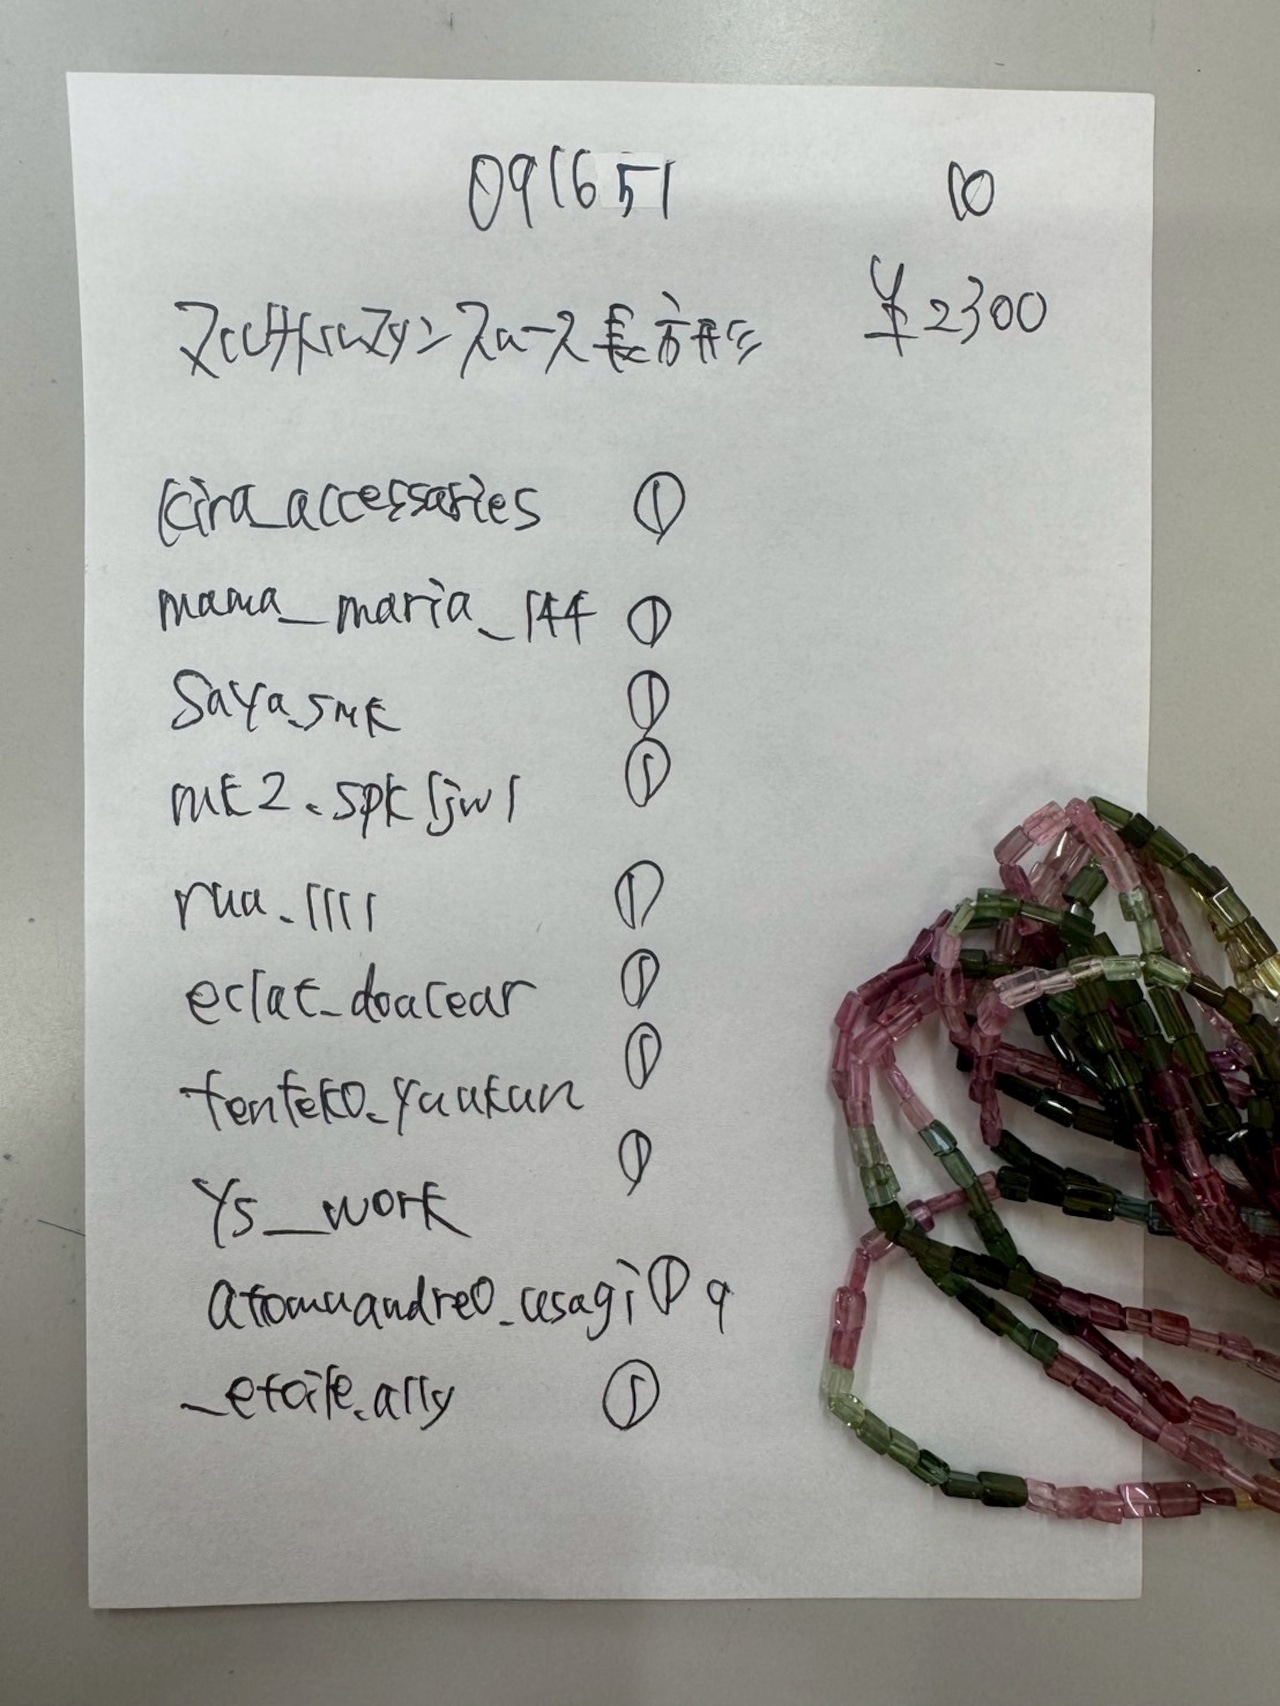 091651 10
マルチトルマリン スムース長方形 ¥2300
kira_accessaries ①
mama_maria_144 ①
saya.smk ①
mk2.spk1jw1 ①
rua_1111 ①
eclat_doucear ①
tenteko_yuukun ①
ys__work ①
atomuandreo_usagi ① 9
_etoile.ally ①